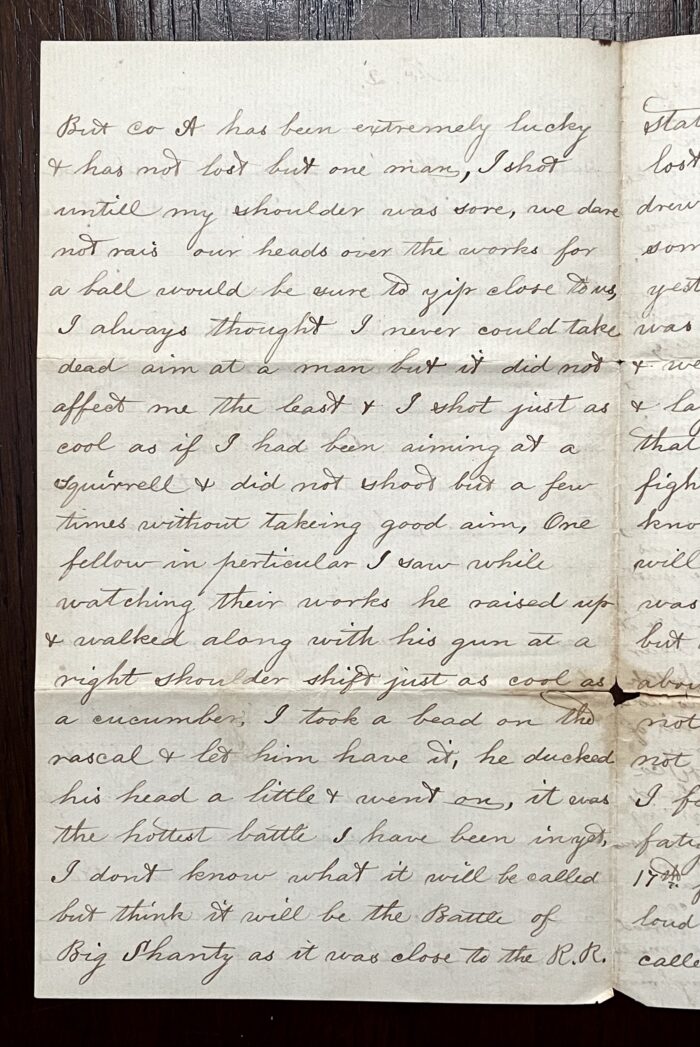 But co A has been extremely lucky
& has not lost but one man, I shot
untill my shoulder was sore, we dare
not rais our heads over the works for
a ball would be sure to zip close to us,
I always thought I never could take
dead aim at a man but it did not
affect me the least & I shot just as
cool as if I had been aiming at a
squirrell & did not shoot but a few
times without takeing good aim, One
fellow in perticular I saw while
watching their works he raised up
& walked along with his gun at a
right shoulder shift just as cool as
a cucumber, I took a bead on the
rascal & let him have it, he ducked
his head a little & went on, it was
the hottest battle I have been in yet,
I dont know what it will be called
but think it will be the Battle of
Big Shanty as it was close to the R.R.
lost
drew
was
& we
&
that
will
was
but
not
not
I
17th
loud